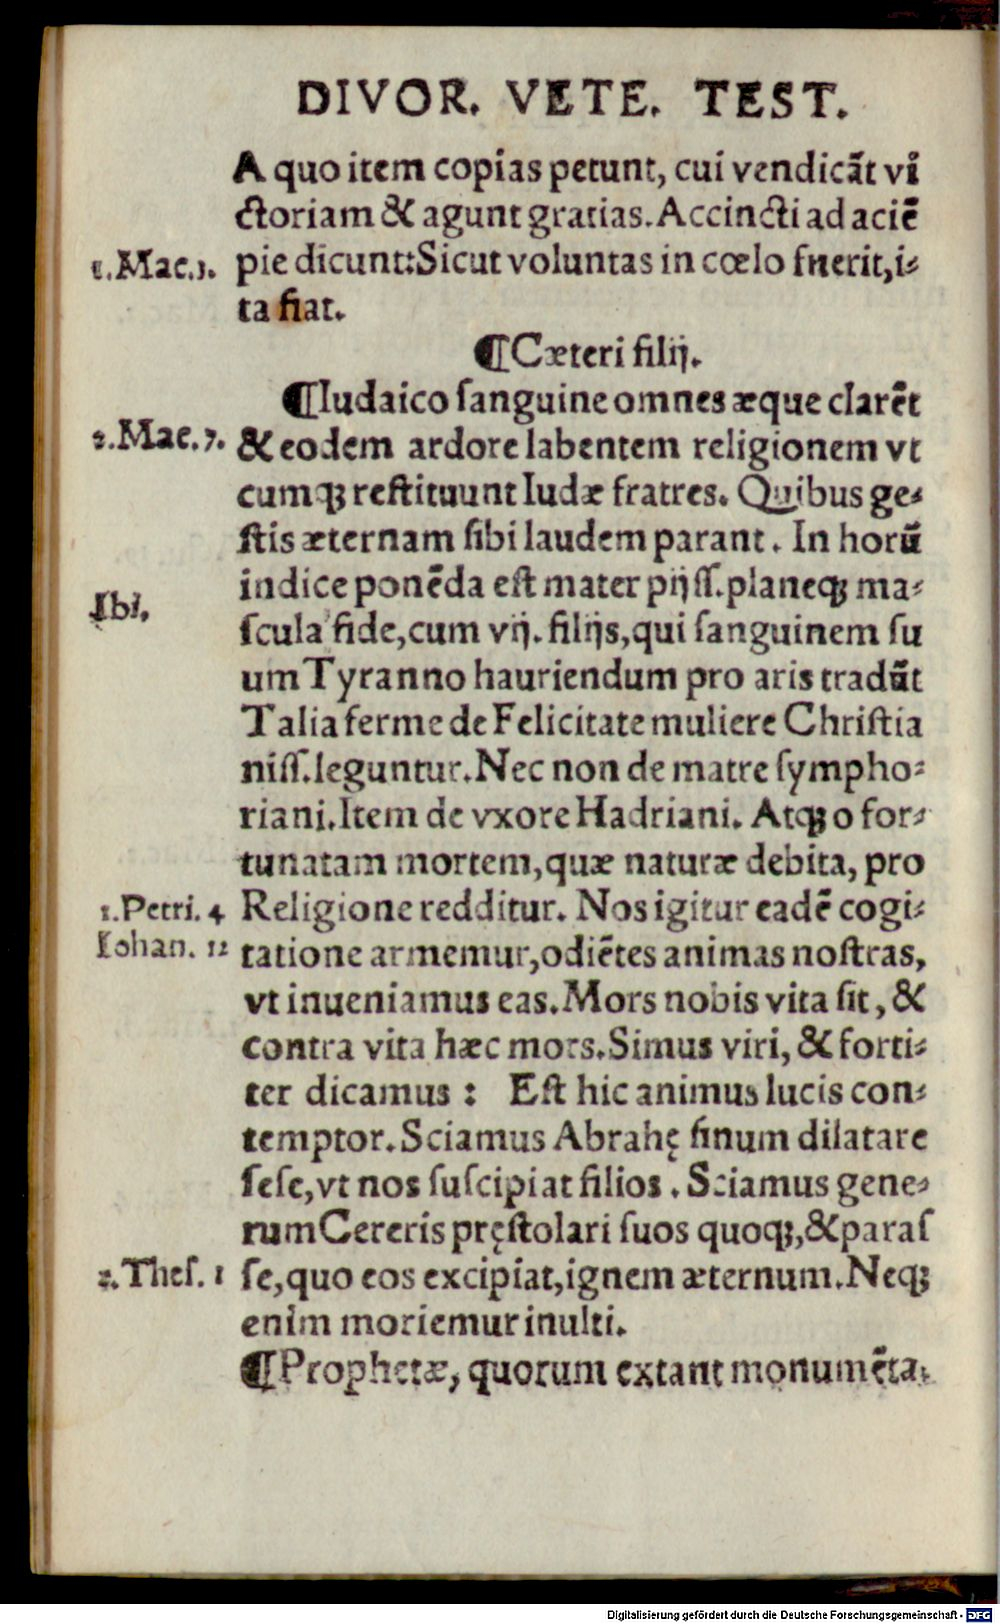 DIVOR. VETE. TEST.
A quo item copias petunt, cui vendicāt vi
ctoriam & agunt gratias. Accincti ad aciē
1.Mac.3. pie dicunt: Sicut voluntas in cœlo fuerit, i⸗
ta fiat.
¶Cæteri filij.
¶Iudaico ſanguine omnes æque clarēt
2.Mac.7. & eodem ardore labentem religionem vt
cumqꝫ reſtituunt Iudæ fratres. Quibus ge⸗
ſtis æternam ſibi laudem parant. In horū
indice ponēda eſt mater pijſſ. planeqꝫ ma⸗
Ibi. ſcula fide, cum vij. filijs, qui ſanguinem ſu
um Tyranno hauriendum pro aris tradūt
Talia ferme de Felicitate muliere Chriſtia
niſſ. leguntur. Nec non de matre ſympho⸗
riani. Item de vxore Hadriani. Atqꝫ o for⸗
tunatam mortem, quæ naturæ debita, pro
1.Petri. 4 Religione redditur. Nos igitur eadē cogi⸗
Iohan. 12 tatione armemur, odiētes animas noſtras,
vt inueniamus eas. Mors nobis vita ſit, &
contra vita hæc mors. Simus viri, & forti⸗
ter dicamus : Eſt hic animus lucis con⸗
temptor. Sciamus Abrahę ſinum dilatare
ſeſe, vt nos ſuſcipiat filios . Sciamus gene⸗
rum Cereris pręſtolari ſuos quoqꝫ, & paraſ
2.Theſ. 1 ſe, quo eos excipiat, ignem æternum. Neqꝫ
enim moriemur inulti.
¶Prophetæ, quorum extant monumēta.
Digitalisierung gefördert durch die Deutsche Forschungsgemeinschaft - DFG